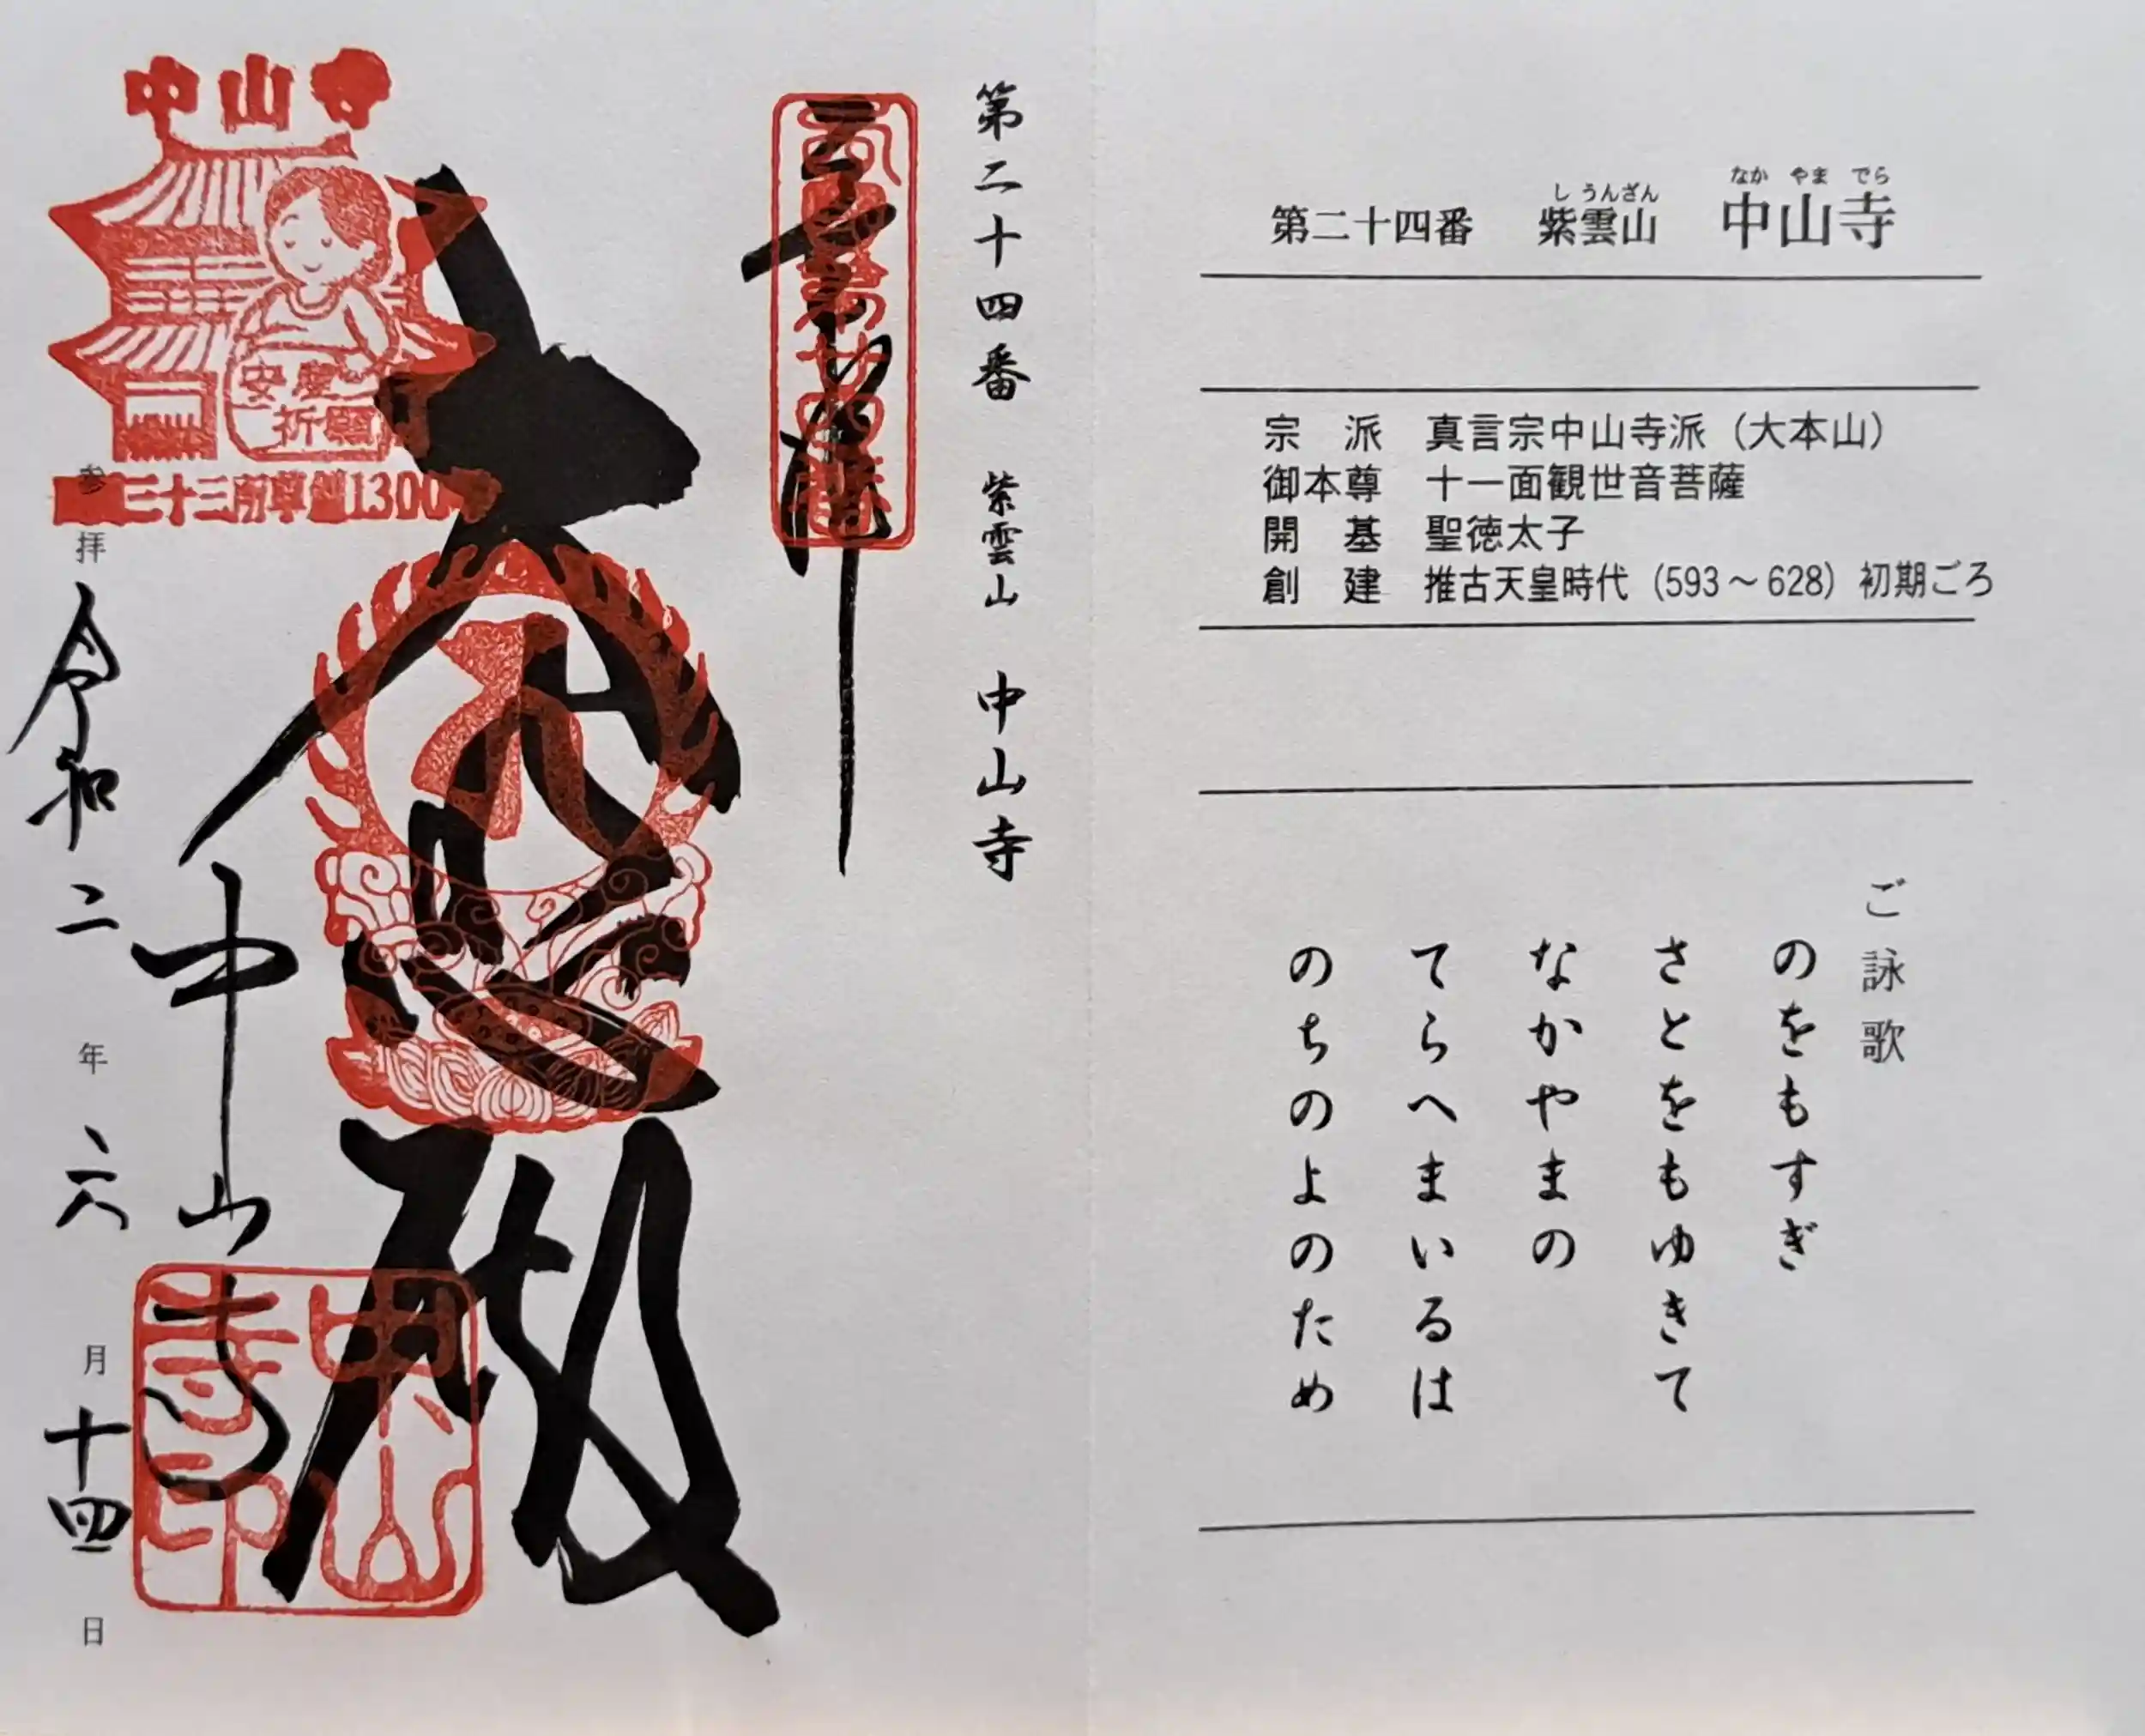 第二十四番 紫雲山 中山寺
しうんざん なかやまでら
宗派 真言宗中山寺派（大本山）
御本尊 十一面観世音菩薩
開基 聖徳太子
創建 推古天皇時代（593～628）初期ごろ
ご詠歌
のをもすぎ
さとをもゆきて
なかやまの
てらへまいるは
のちのよのため
第二十四番 紫雲山 中山寺
奉拝
大悲殿
中山寺
中山寺印
中山寺
安産
祈願
三十三所草創1300
参拝 令和二年六月十四日